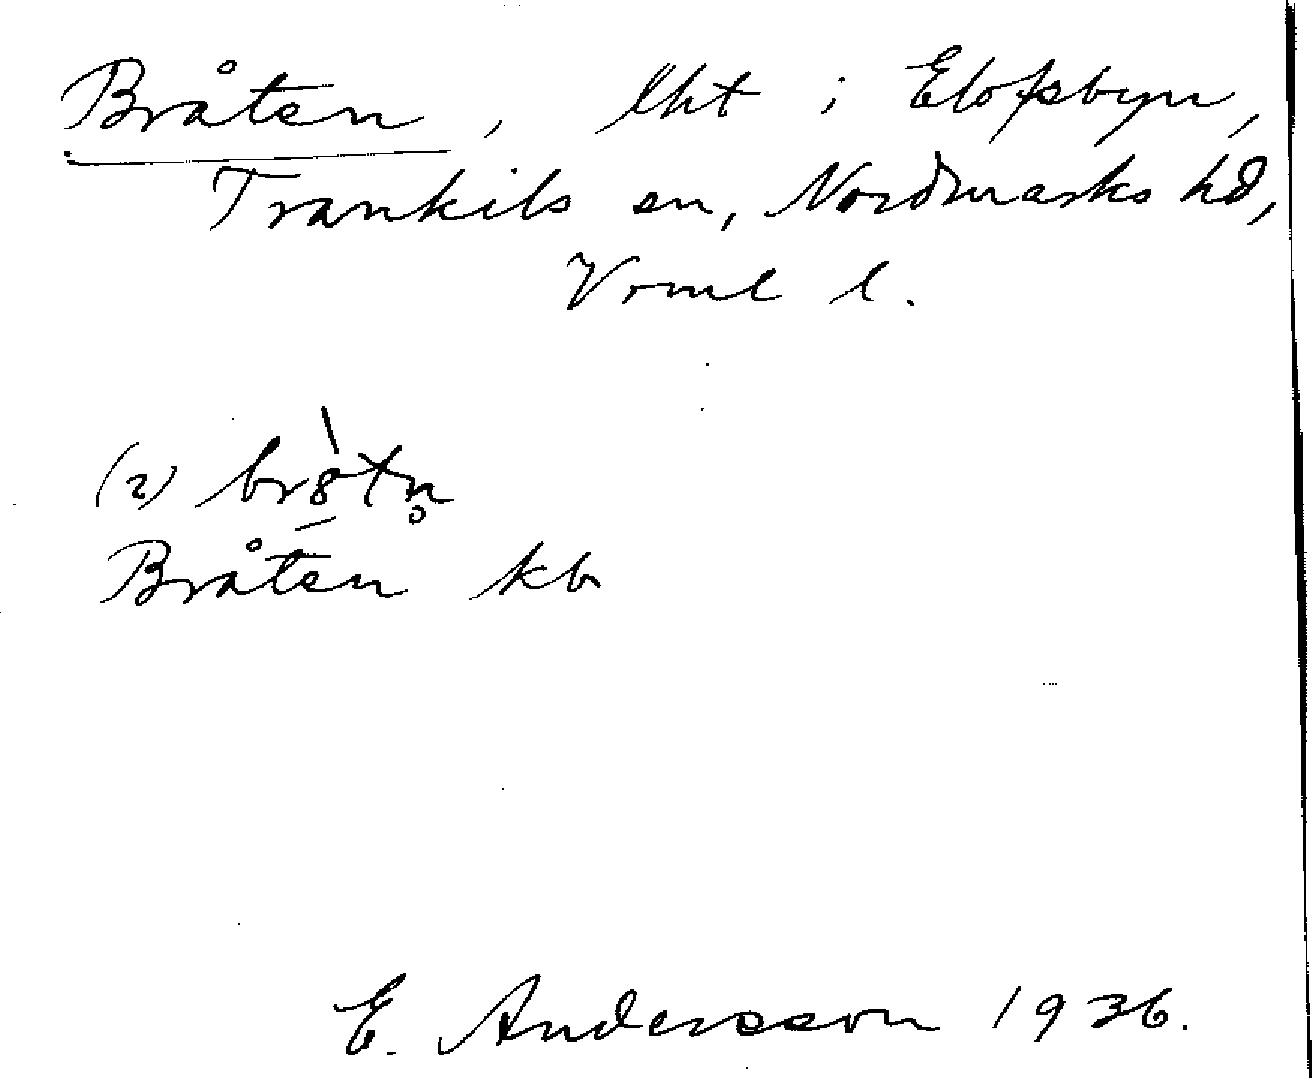 Bråten, lht i Elofsbyn,
Trankils sn, Nordmarks hd,
Vrml l.
(2) br8̀tn̥
Bråten kb
E. Andersson 1936.